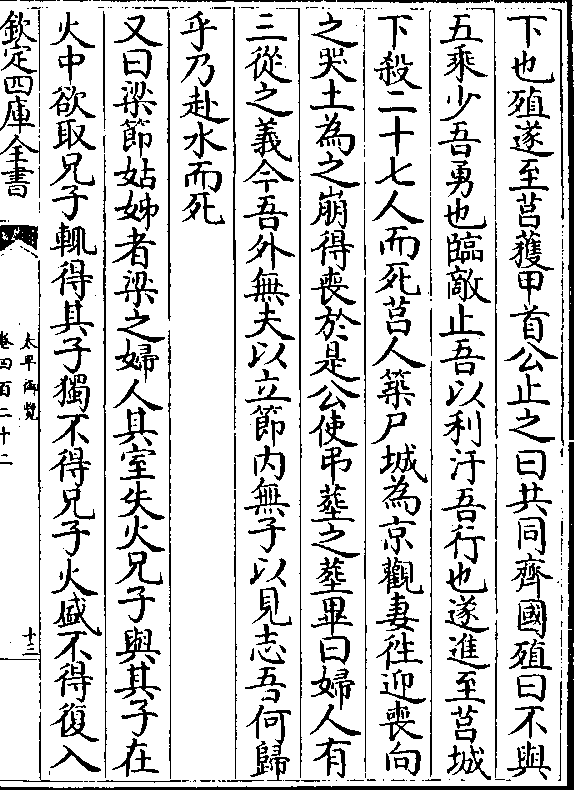 下也殖遂至莒獲甲首公止之曰共同齊國殖曰不與
五乘少吾勇也臨敵止吾以利汙吾行也遂進至莒城
下殺二十七人而死莒人築尸城為京觀妻徃迎喪向
之哭土為之崩得喪於是公使弔塟之塟畢曰婦人有
三從之義今吾外無夫以立節内無子以見志吾何歸
乎乃赴水而死
又曰梁節姑姊者梁之婦人其室失火兄子與其子在
火中欲取兄子輒得其子獨不得兄子火盛不得復入
欽定四庫全書
太平御覽
卷四百二十二
十三